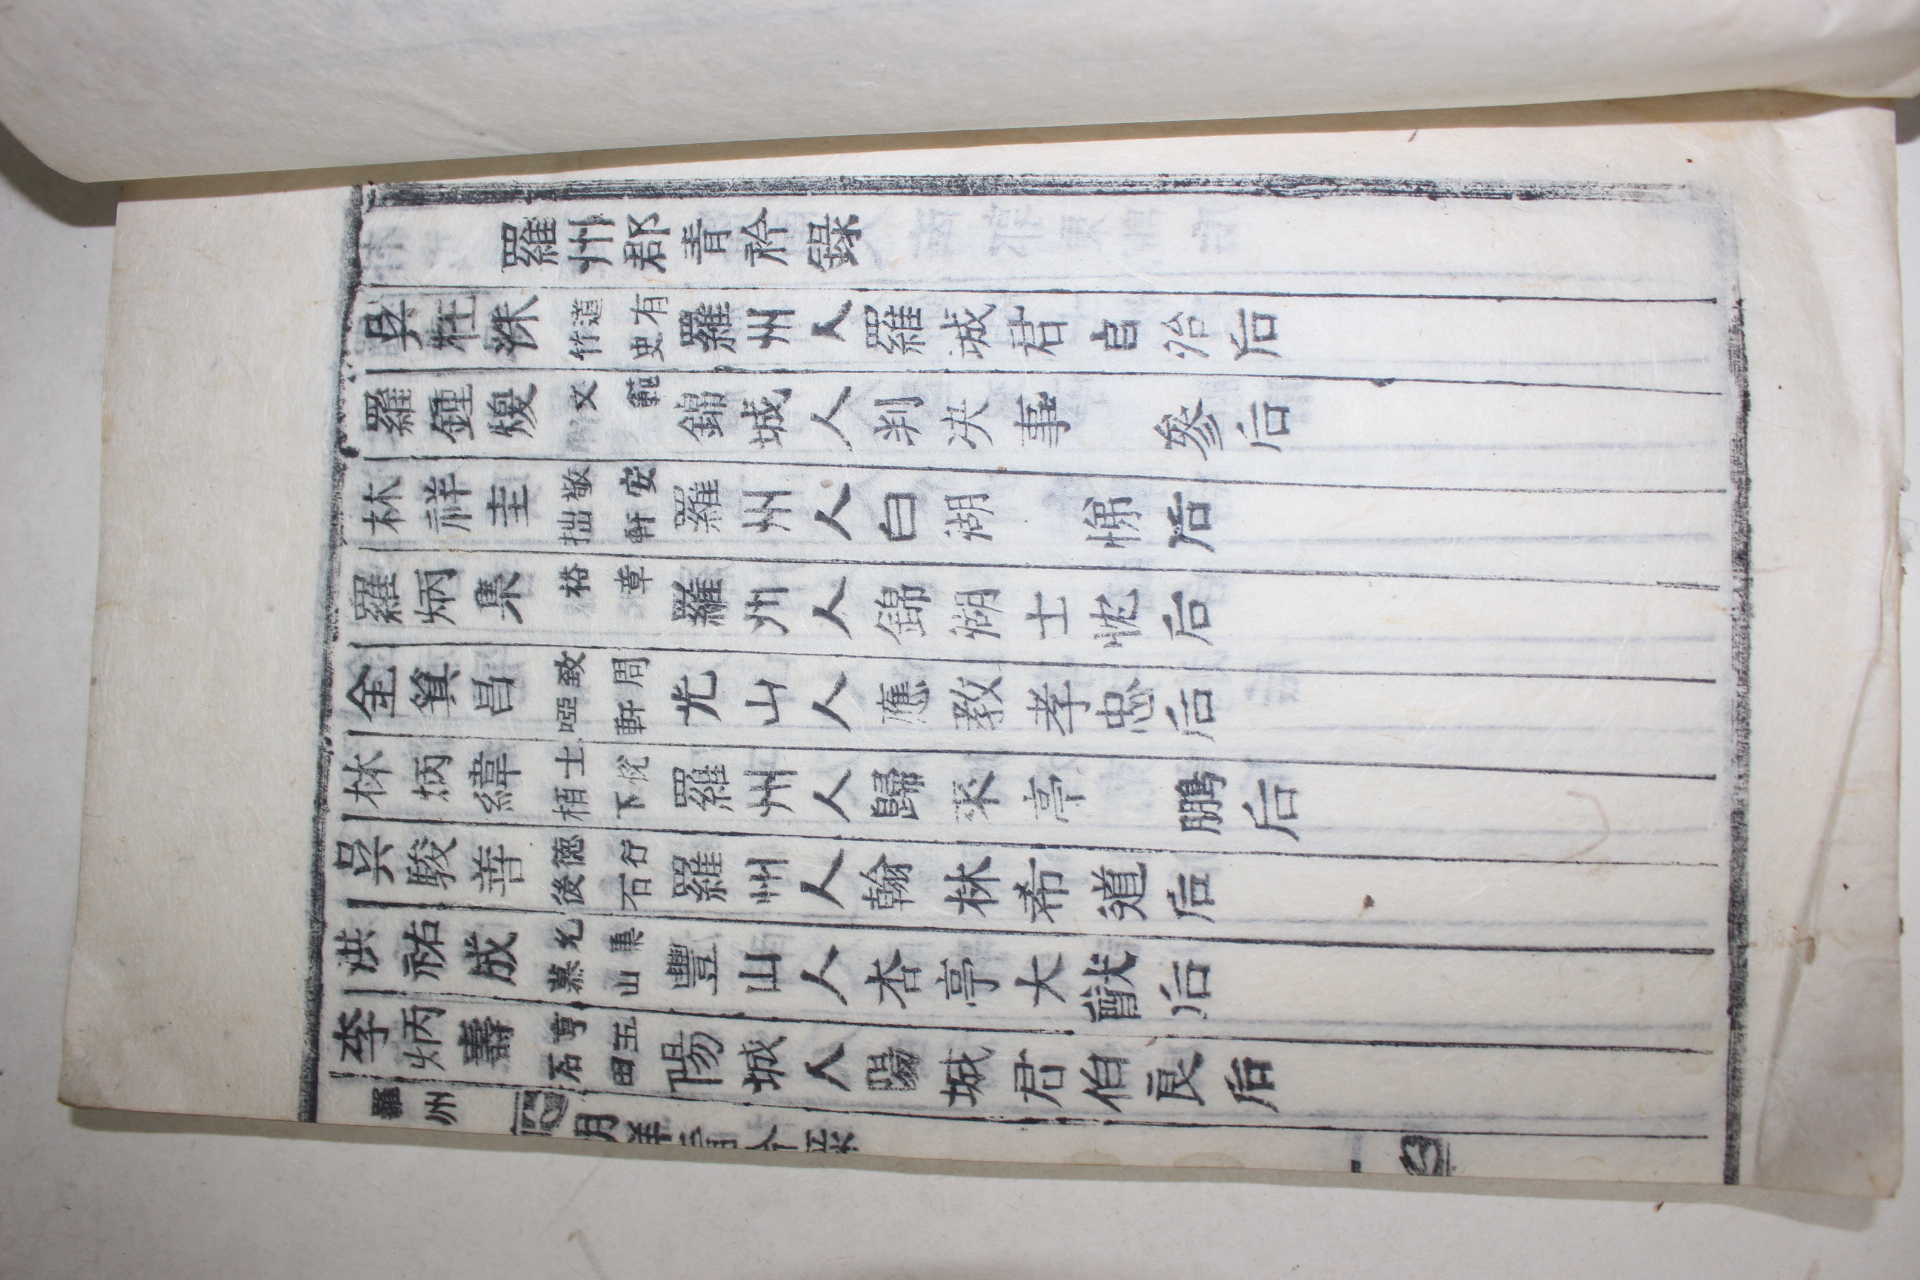 羅州郡青衿錄
吳在洙 道有竹史 羅州人羅城君自治后
羅鍾煖 文範 錦城人判决事 參后
林祥圭 敬安拙軒 羅州人白湖 悌后
羅炳集 裕章 羅州人錦湖士忱后
金箕昌 致周啞軒 光山人應教孝忠后
林炳緯 士悅栢下 羅州人歸來亭 鵬后
吳駿善 德行後石 羅州人翰林希道后
洪祐成 允集慕山 豐山人杏亭大猷后
李炳壽 亨五石田 陽城人陽城君伯良后
羅州